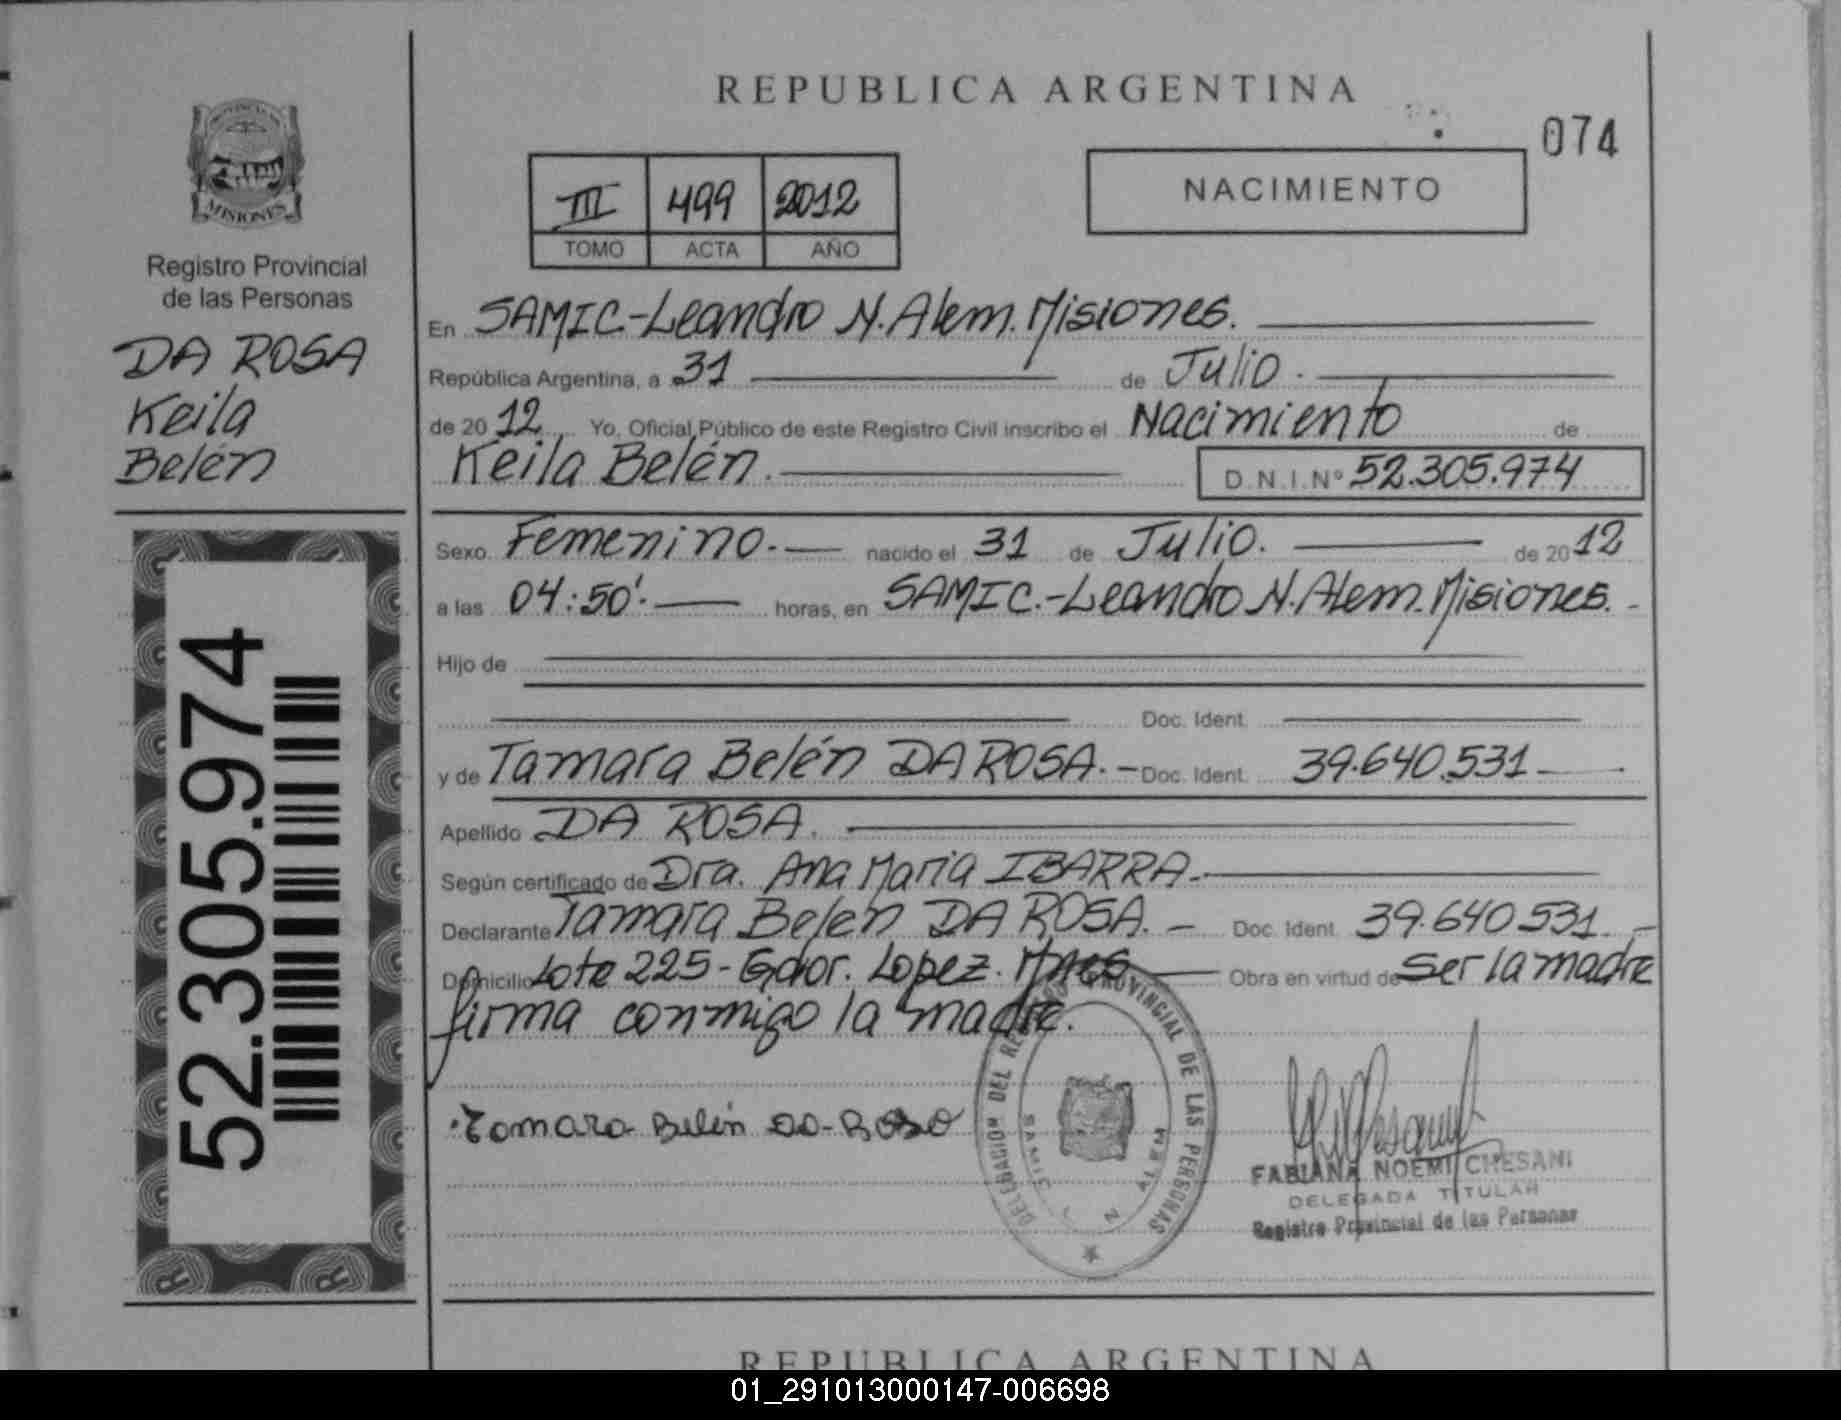 REPUBLICA ARGENTINA
074
NACIMIENTO
III 499 2012
TOMO ACTA AÑO
MISIONES
Registro Provincial
de las Personas
DA ROSA
Keila
Belén
52.305.974
En SAMIC-Leandro N. Alem. Misiones.
República Argentina, a 31 de Julio.
de 2012 Yo, Oficial Público de este Registro Civil inscribo el Nacimiento de
Keila Belén. D.N.I.Nº 52.305.974
Sexo Femenino. nacido el 31 de Julio. de 2012
a las 04:50'. horas, en SAMIC.-Leandro N. Alem. Misiones.
Hijo de
Doc. Ident.
y de Tamara Belén DA ROSA. Doc. Ident. 39.640.531
Apellido DA ROSA.
Según certificado de Dra. Ana Maria IBARRA.
Declarante Tamara Belen DA ROSA. Doc. Ident. 39.640.531.
Domicilio Lote 225-Gdor. Lopez. Mnes. Obra en virtud de ser la madre
firma conmigo la madre.
Tamara Belén Da-Rosa
DELEGACION DEL REGISTRO PROVINCIAL DE LAS PERSONAS
SAMIC L N ALEM
FABIANA NOEMI CHESANI
DELEGADA TITULAR
Registro Provincial de las Personas
REPUBLICA ARGENTINA
01_291013000147-006698